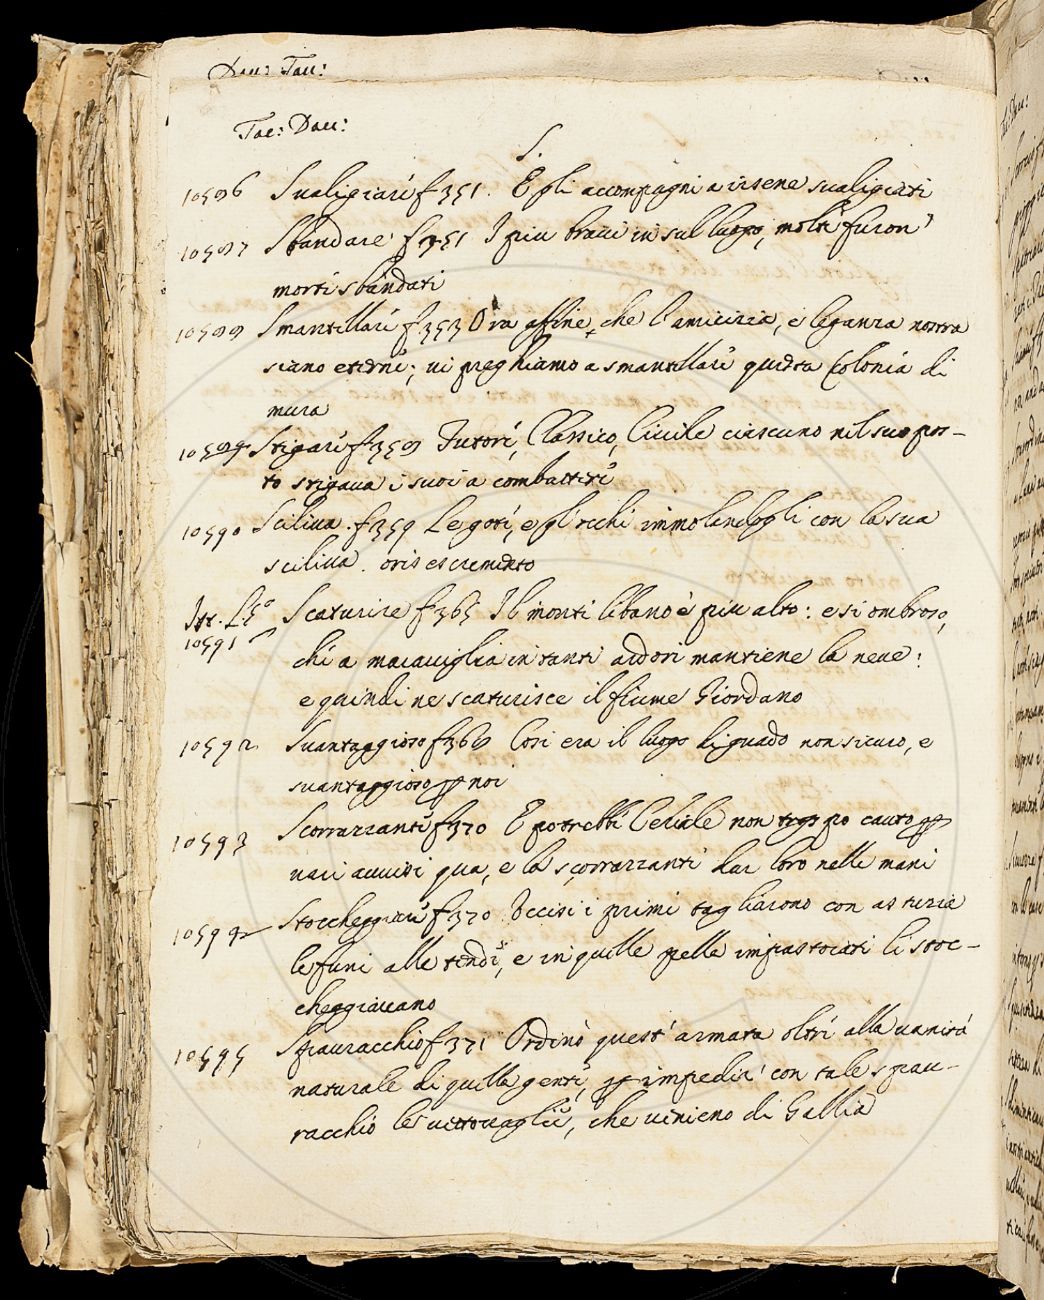 Dau: Tac:
Tac: Dau:
S.
10586 Svaligiare f 351. E gli accompagni a irsene svaligiati
10587 Sbandare f 351 I piu bravi in sul luogo, molti furon
morti sbandati
Smantellare f. 353 Ora affine, che l'amicizia, e leganza nostra
siano eterne; vi preghiamo a smantellare questa Colonia di
mura
Stigare f. 359 Tutori, Classico, Civile ciascuno nel suo pos-
to stigava i suoi a combattere
10590 Sciliva. f. 359 Le goti, e gl'occhi immolandogli con la sua
sciliva. oris escremento
10591 Scaturire f 365 Il monte libano è piu alto: e si ombroso,
che a maraviglia in tanti ardori mantiene la neve:
e quindi ne scaturisce il fiume Giordano
10592 Svantaggioso f 368 Cosi era il luogo di guado non sicuro, e
svantaggioso p noi
10593 Scorrazzante f 370 E potrebbe Ceriale non troppo cauto p
vari avvisi qua, e là scorrazzante dar loro nelle mani
10594 Stoccheggiare f 370 Occisi i primi tagliarono con astuzia
le funi alle tende, e in quelle pelle impastoiati li stoc-
cheggiavano
10595 Spauracchio f 371 Ordinò quest'armata oltre alla vanità
naturale di quelle genti, p impedir con tale spau-
racchio le vettovaglie, che venieno di Gallia